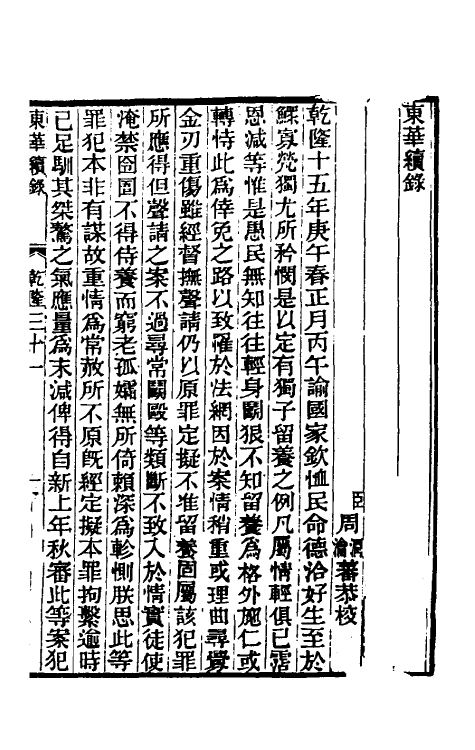 東華續錄
臣周潤蕃恭校
瀹
乾隆十五年庚午春正月丙午諭國家欽恤民命德洽好生至於
鰥寡煢獨尤所矜憫是以定有獨子留養之例凡屬情輕俱已霑
恩減等惟是愚民無知往往輕身鬭狠不知留養爲格外施仁或
轉恃此爲倖免之路以致罹於法網因於案情稍重或理曲尋釁
金刃重傷雖經督撫聲請仍以原罪定擬不准留養固屬該犯罪
所應得但聲請之案不過尋常鬭毆等類斷不致入於情實徒使
淹禁囹圄不得侍養而窮老孤孀無所倚賴深爲軫惻朕思此等
罪犯本非有謀故重情爲常赦所不原旣經定擬本罪拘繫逾時
已足馴其桀驁之氣應量爲末減俾得自新上年秋審此等案犯
東華續錄 乾隆三十一 一